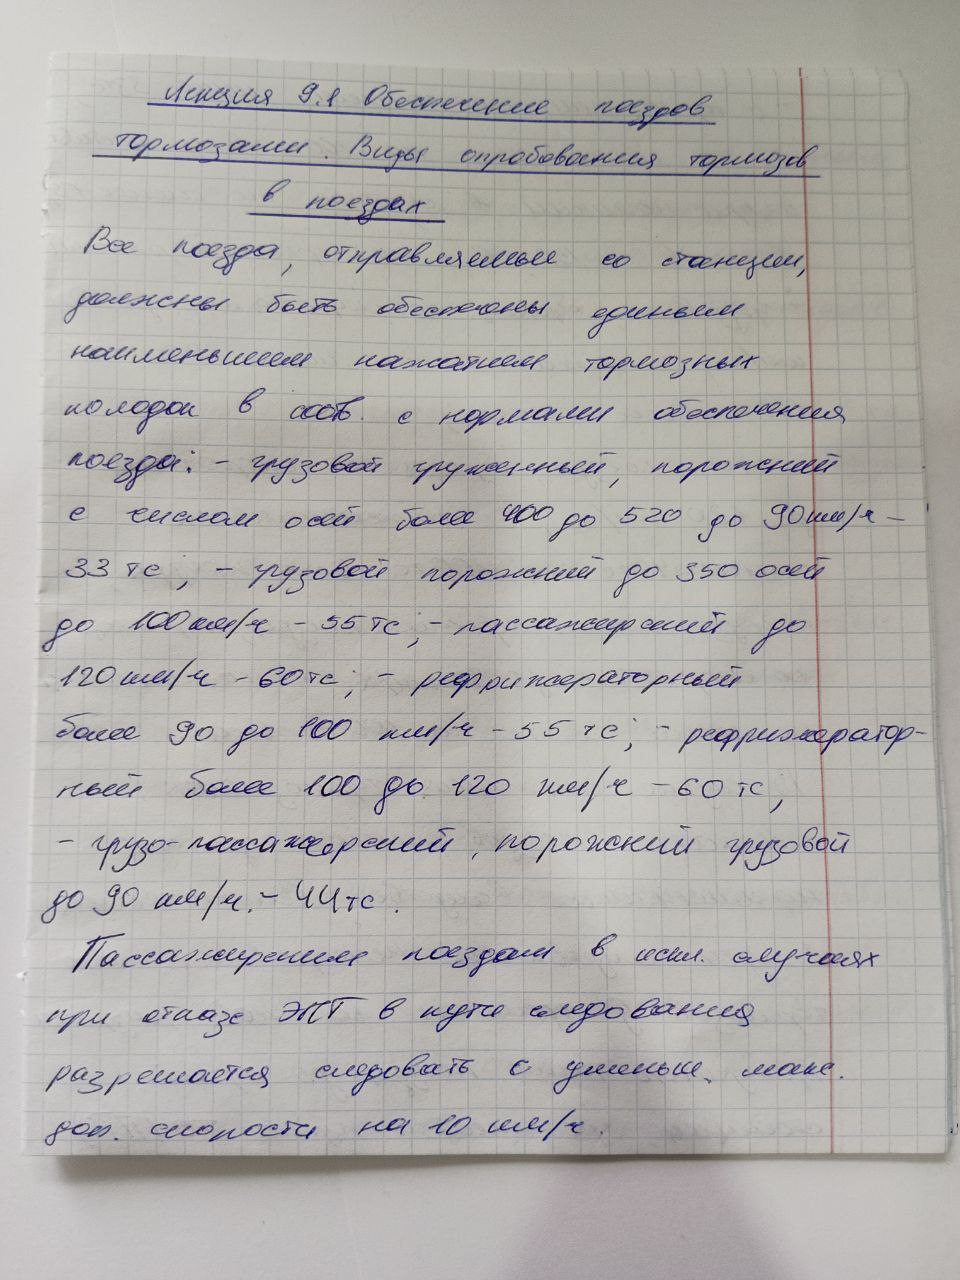 Лекция 9.1 Обеспечение поездов
тормозами. Виды опробования тормозов
в поездах
Все поезда, отправляемые со станции,
должны быть обеспечены единым
наименьшим нажатием тормозных
колодок в соотв. с нормами обеспечения
поезда: - грузовой груженный, порожний
с числом осей более 400 до 520 до 90 км/ч -
33 тс; - грузовой порожний до 350 осей
до 100 км/ч - 55 тс; - пассажирский до
120 км/ч - 60 тс; - рефрижераторный
более 90 до 100 км/ч - 55 тс; - рефрижератор-
ный более 100 до 120 км/ч - 60 тс;
- грузо-пассажирский, порожний грузовой
до 90 км/ч. - 44 тс.
Пассажирским поездам в искл. случаях
при отказе ЭПТ в пути следования
разрешается следовать с уменьш. макс.
доп. скорости на 10 км/ч.